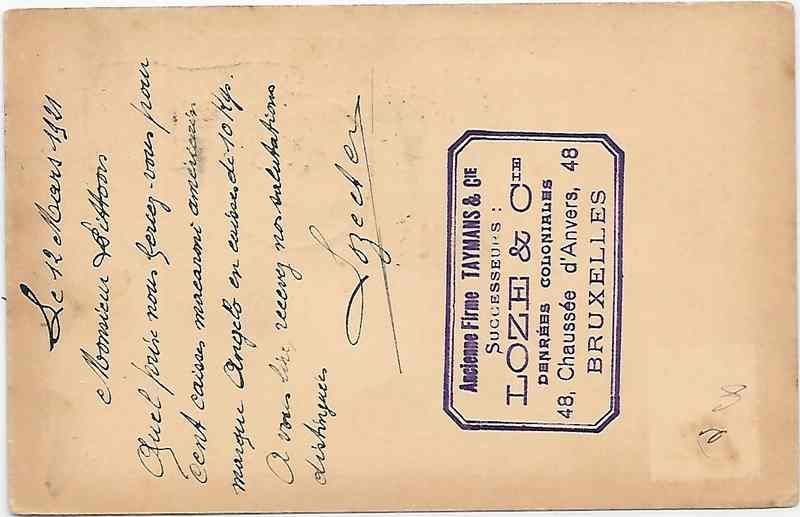 Le 12 Mars 1921
Monsieur
Quel prix nous feriez-vous pour
cent caisses macaroni américain
marque Angelo en caisses de 10 Kgs.
A vous lire recevez nos salutations
distinguées
Ancienne Firme TAYMANS & CIE
SUCCESSEURS :
LOZE & CIE
DENRÉES COLONIALES
48, Chaussée d'Anvers, 48
BRUXELLES